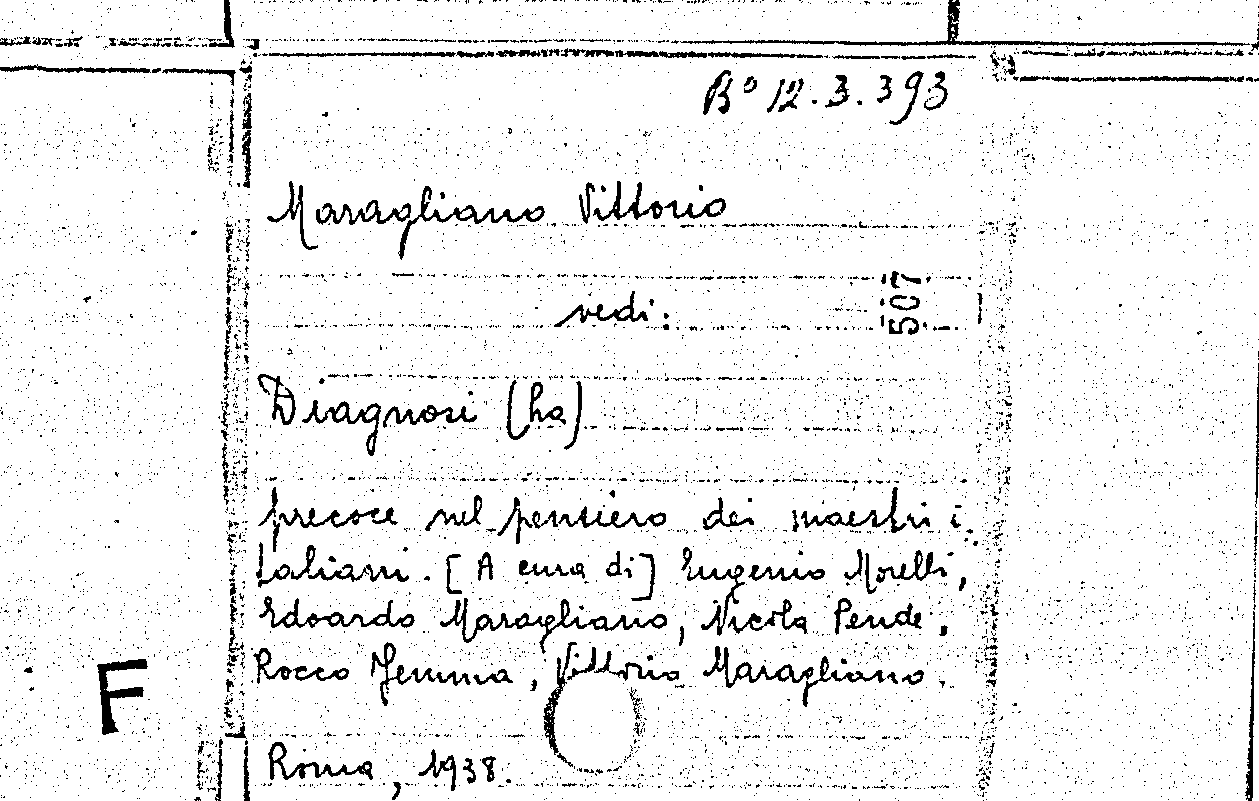 B° 12.3.393
Maragliano Vittorio
507
vedi:
Diagnosi (la)
precoce nel pensiero dei maestri i-
taliani. [A cura di] Eugenio Morelli,
Edoardo Maragliano, Nicola Pende,
Rocco Jemma, Vittorio Maragliano.
F
Roma, 1938.